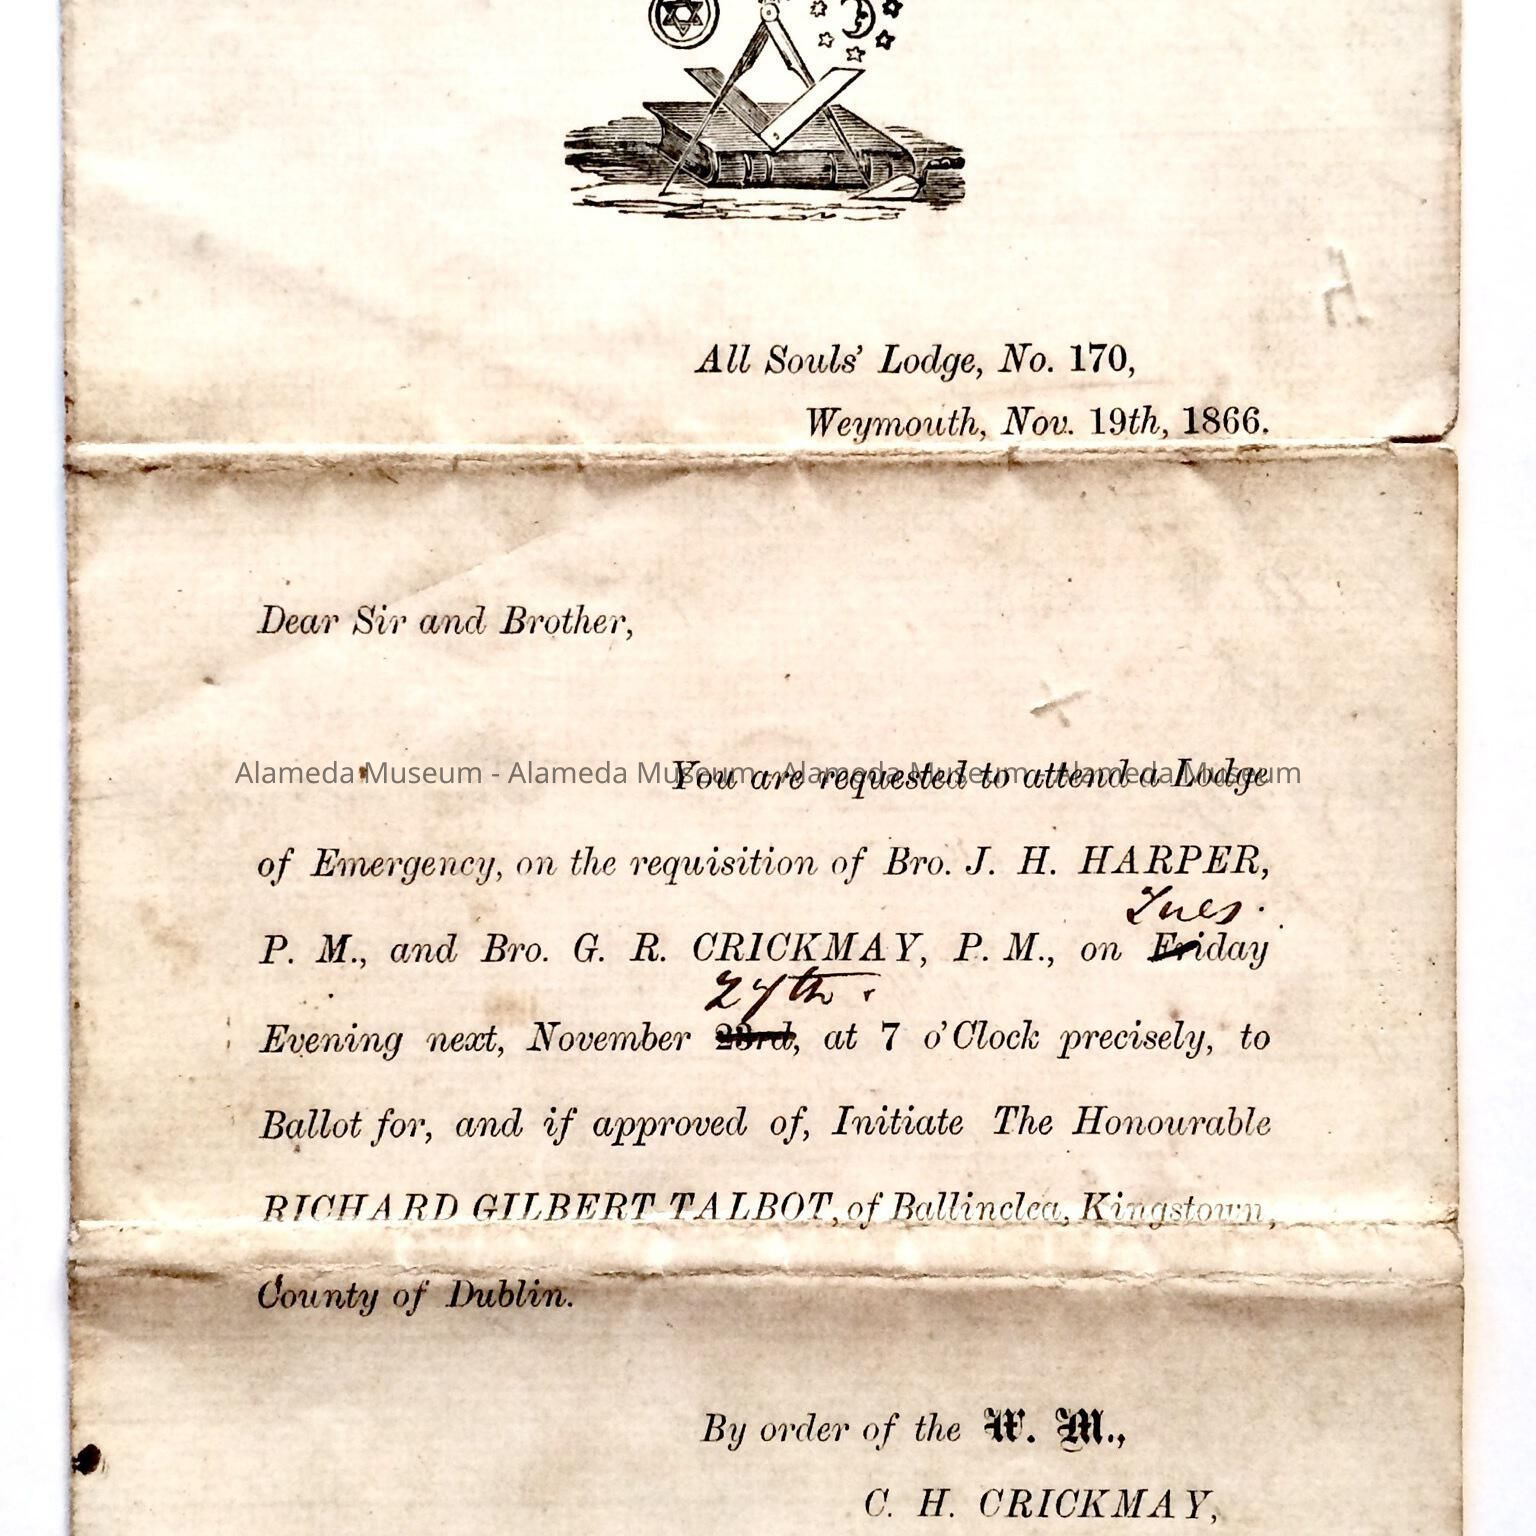 All Souls' Lodge, No. 170,
Weymouth, Nov. 19th, 1866.
Dear Sir and Brother,
Alameda Museum - Alameda Museum - Alameda Museum - Alameda Museum
You are requested to attend a Lodge
of Emergency, on the requisition of Bro. J. H. HARPER,
Tues.
P. M., and Bro. G. R. CRICKMAY, P. M., on Friday
27th.
Evening next, November 23rd, at 7 o'Clock precisely, to
Ballot for, and if approved of, Initiate The Honourable
RICHARD GILBERT TALBOT, of Ballinclea, Kingstown,
County of Dublin.
By order of the W. M.,
C. H. CRICKMAY,